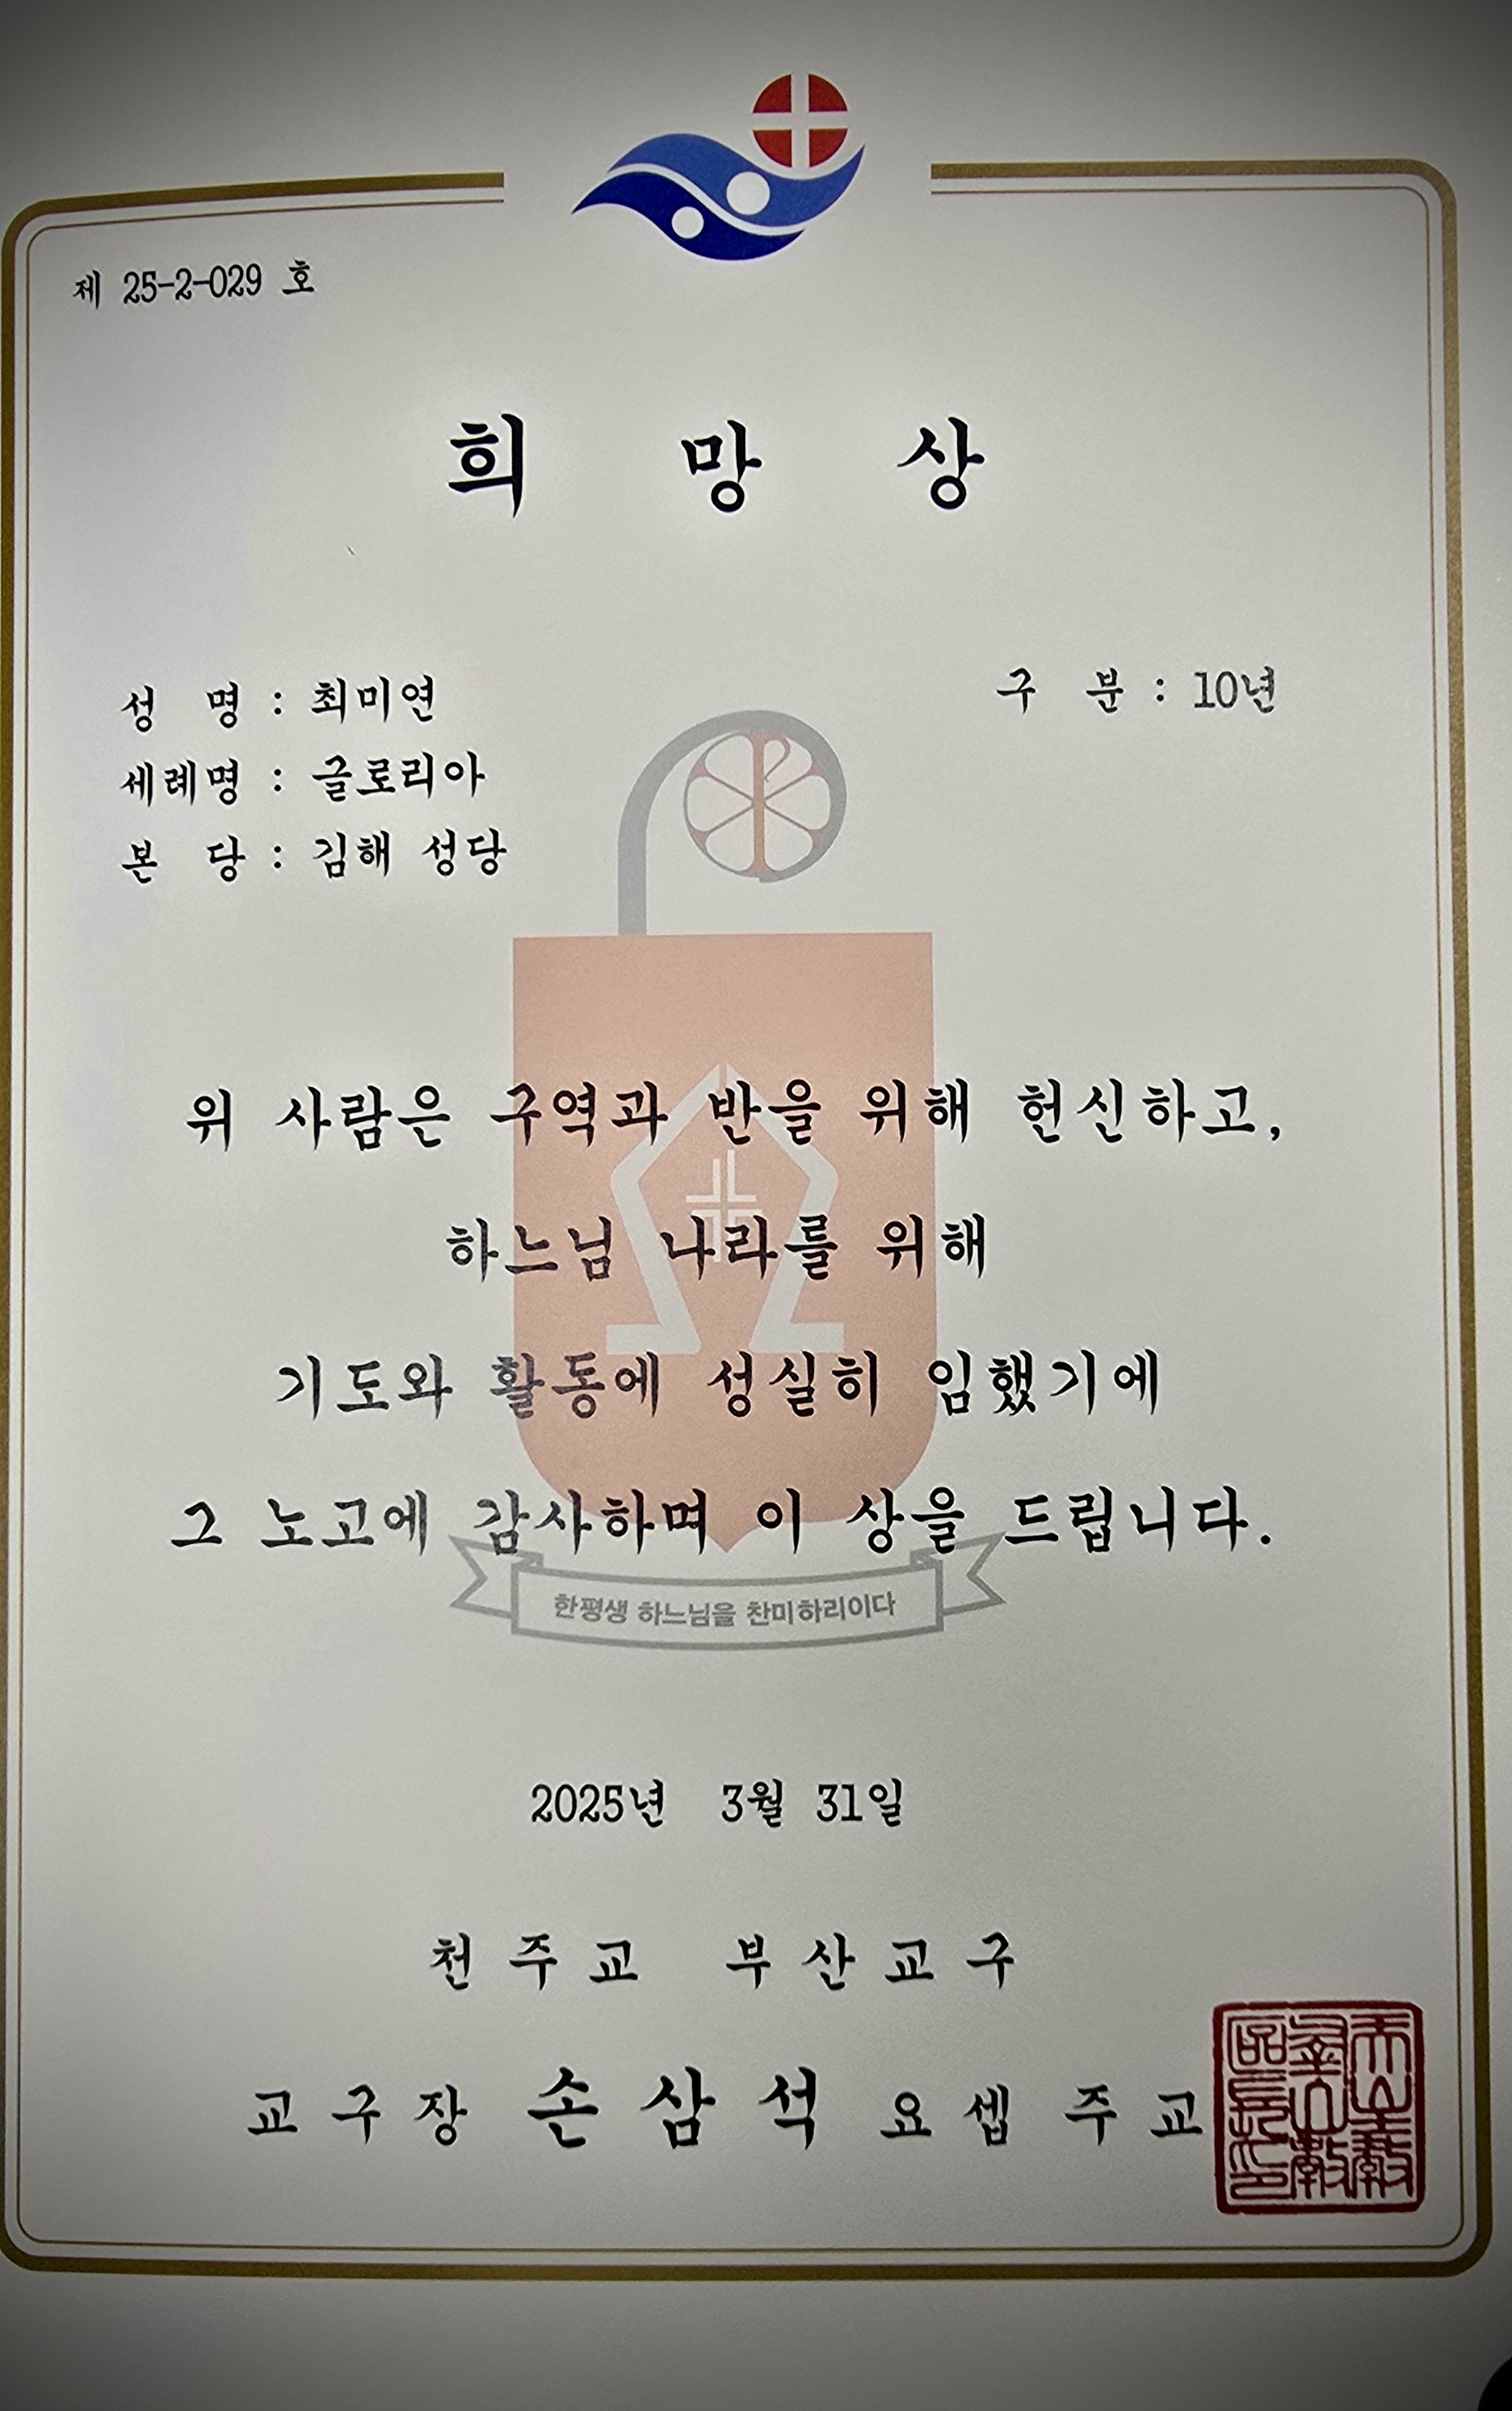 제 25-2-029 호
희 망 상
성 명 : 최미연
구 분 : 10년
세례명 : 글로리아
본 당 : 김해 성당
위 사람은 구역과 반을 위해 헌신하고,
하느님 나라를 위해
기도와 활동에 성실히 임했기에
그 노고에 감사하며 이 상을 드립니다.
한평생 하느님을 찬미하리이다
2025년 3월 31일
천 주 교 부 산 교 구
교 구 장 손 삼 석 요 셉 주 교